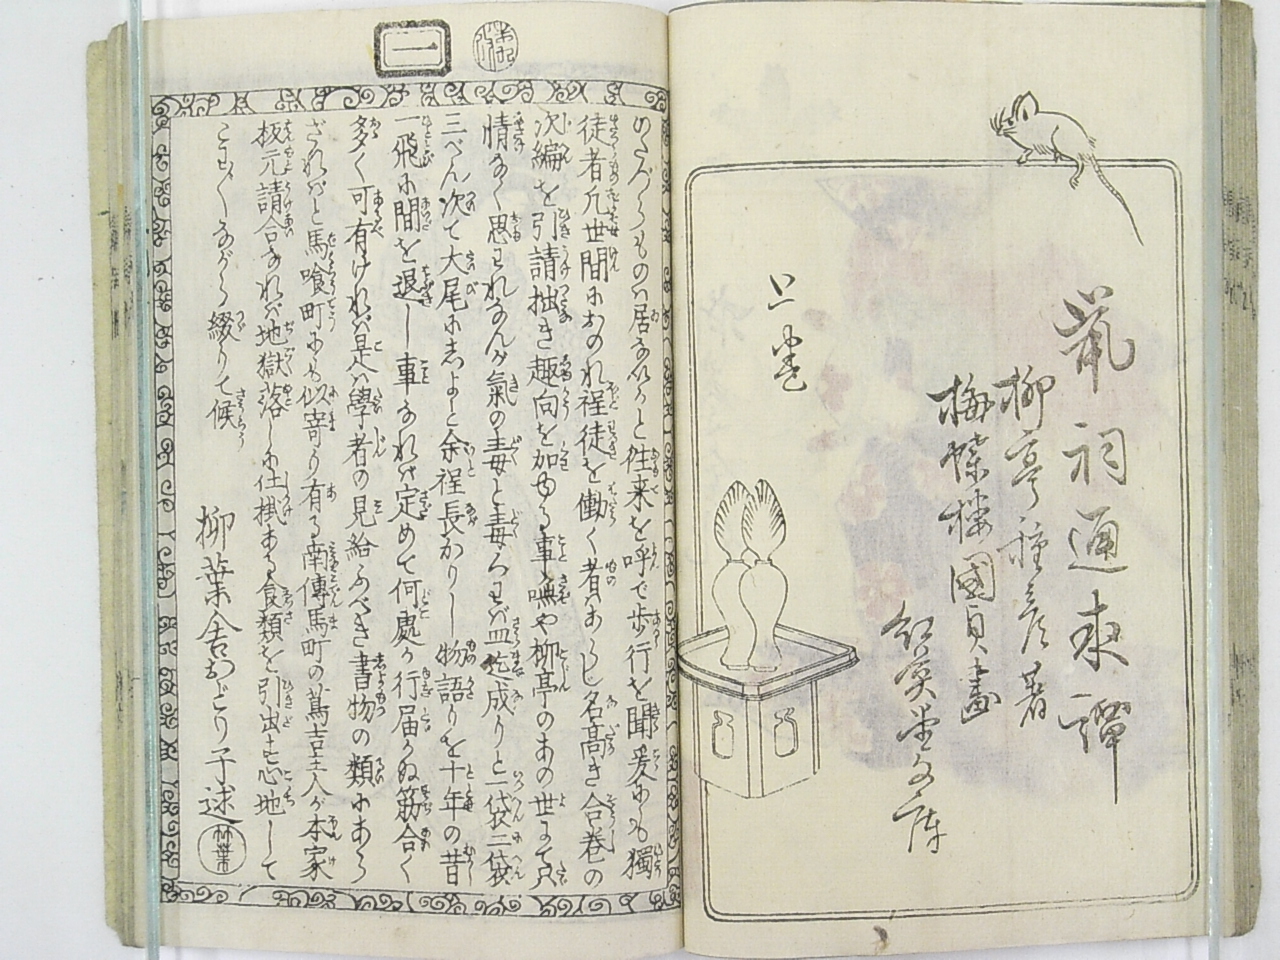 鼠祠通夜譚
柳亭種彦著
梅蝶樓國貞畫
紅英堂文庫
上巻
一
のたぐひものハ居ないかと往来を呼で歩行を聞爰にも獨
徒者凡世間におのれ程徒を働く者ハあらじ名高き合巻の
次編を引請拙き趣向を加ゆる事嘸や柳亭のあの世にて
情なく思われなんが氣の毒と毒ろわば皿迄成りと一袋二袋
三べん次て大尾にしよと余程長かりし物語りを十年の昔
一飛に間を退し事なれば定めて何處か行届かぬ筋合く
多く可有けれハ是ハ學者の見給ふべき書物の類にあら
ざれバと馬喰町にも似寄り有る南傳馬町の蔦吉主人が本家
板元請合なれバ地獄落しに仕掛ある食類を引出す心地して
こわ〴〵ながら綴りて候
柳葉舎おどり子述